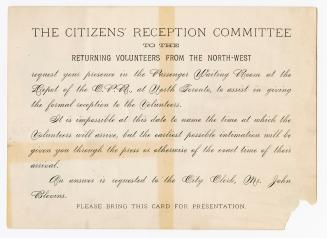 THE CITIZENS' RECEPTION COMMITTEE
TO THE
RETURNING VOLUNTEERS FROM THE NORTH-WEST
request your presence in the Passenger Waiting Room at the
Depot of the C.P.R., at North Toronto, to assist in giving
the formal reception to the Volunteers.
It is impossible at this date to name the time at which the
Volunteers will arrive, but the earliest possible intimation will be
given you through the press or otherwise of the exact time of their
arrival.
An answer is requested to the City Clerk, Mr. John
Blevins.
PLEASE BRING THIS CARD FOR PRESENTATION.